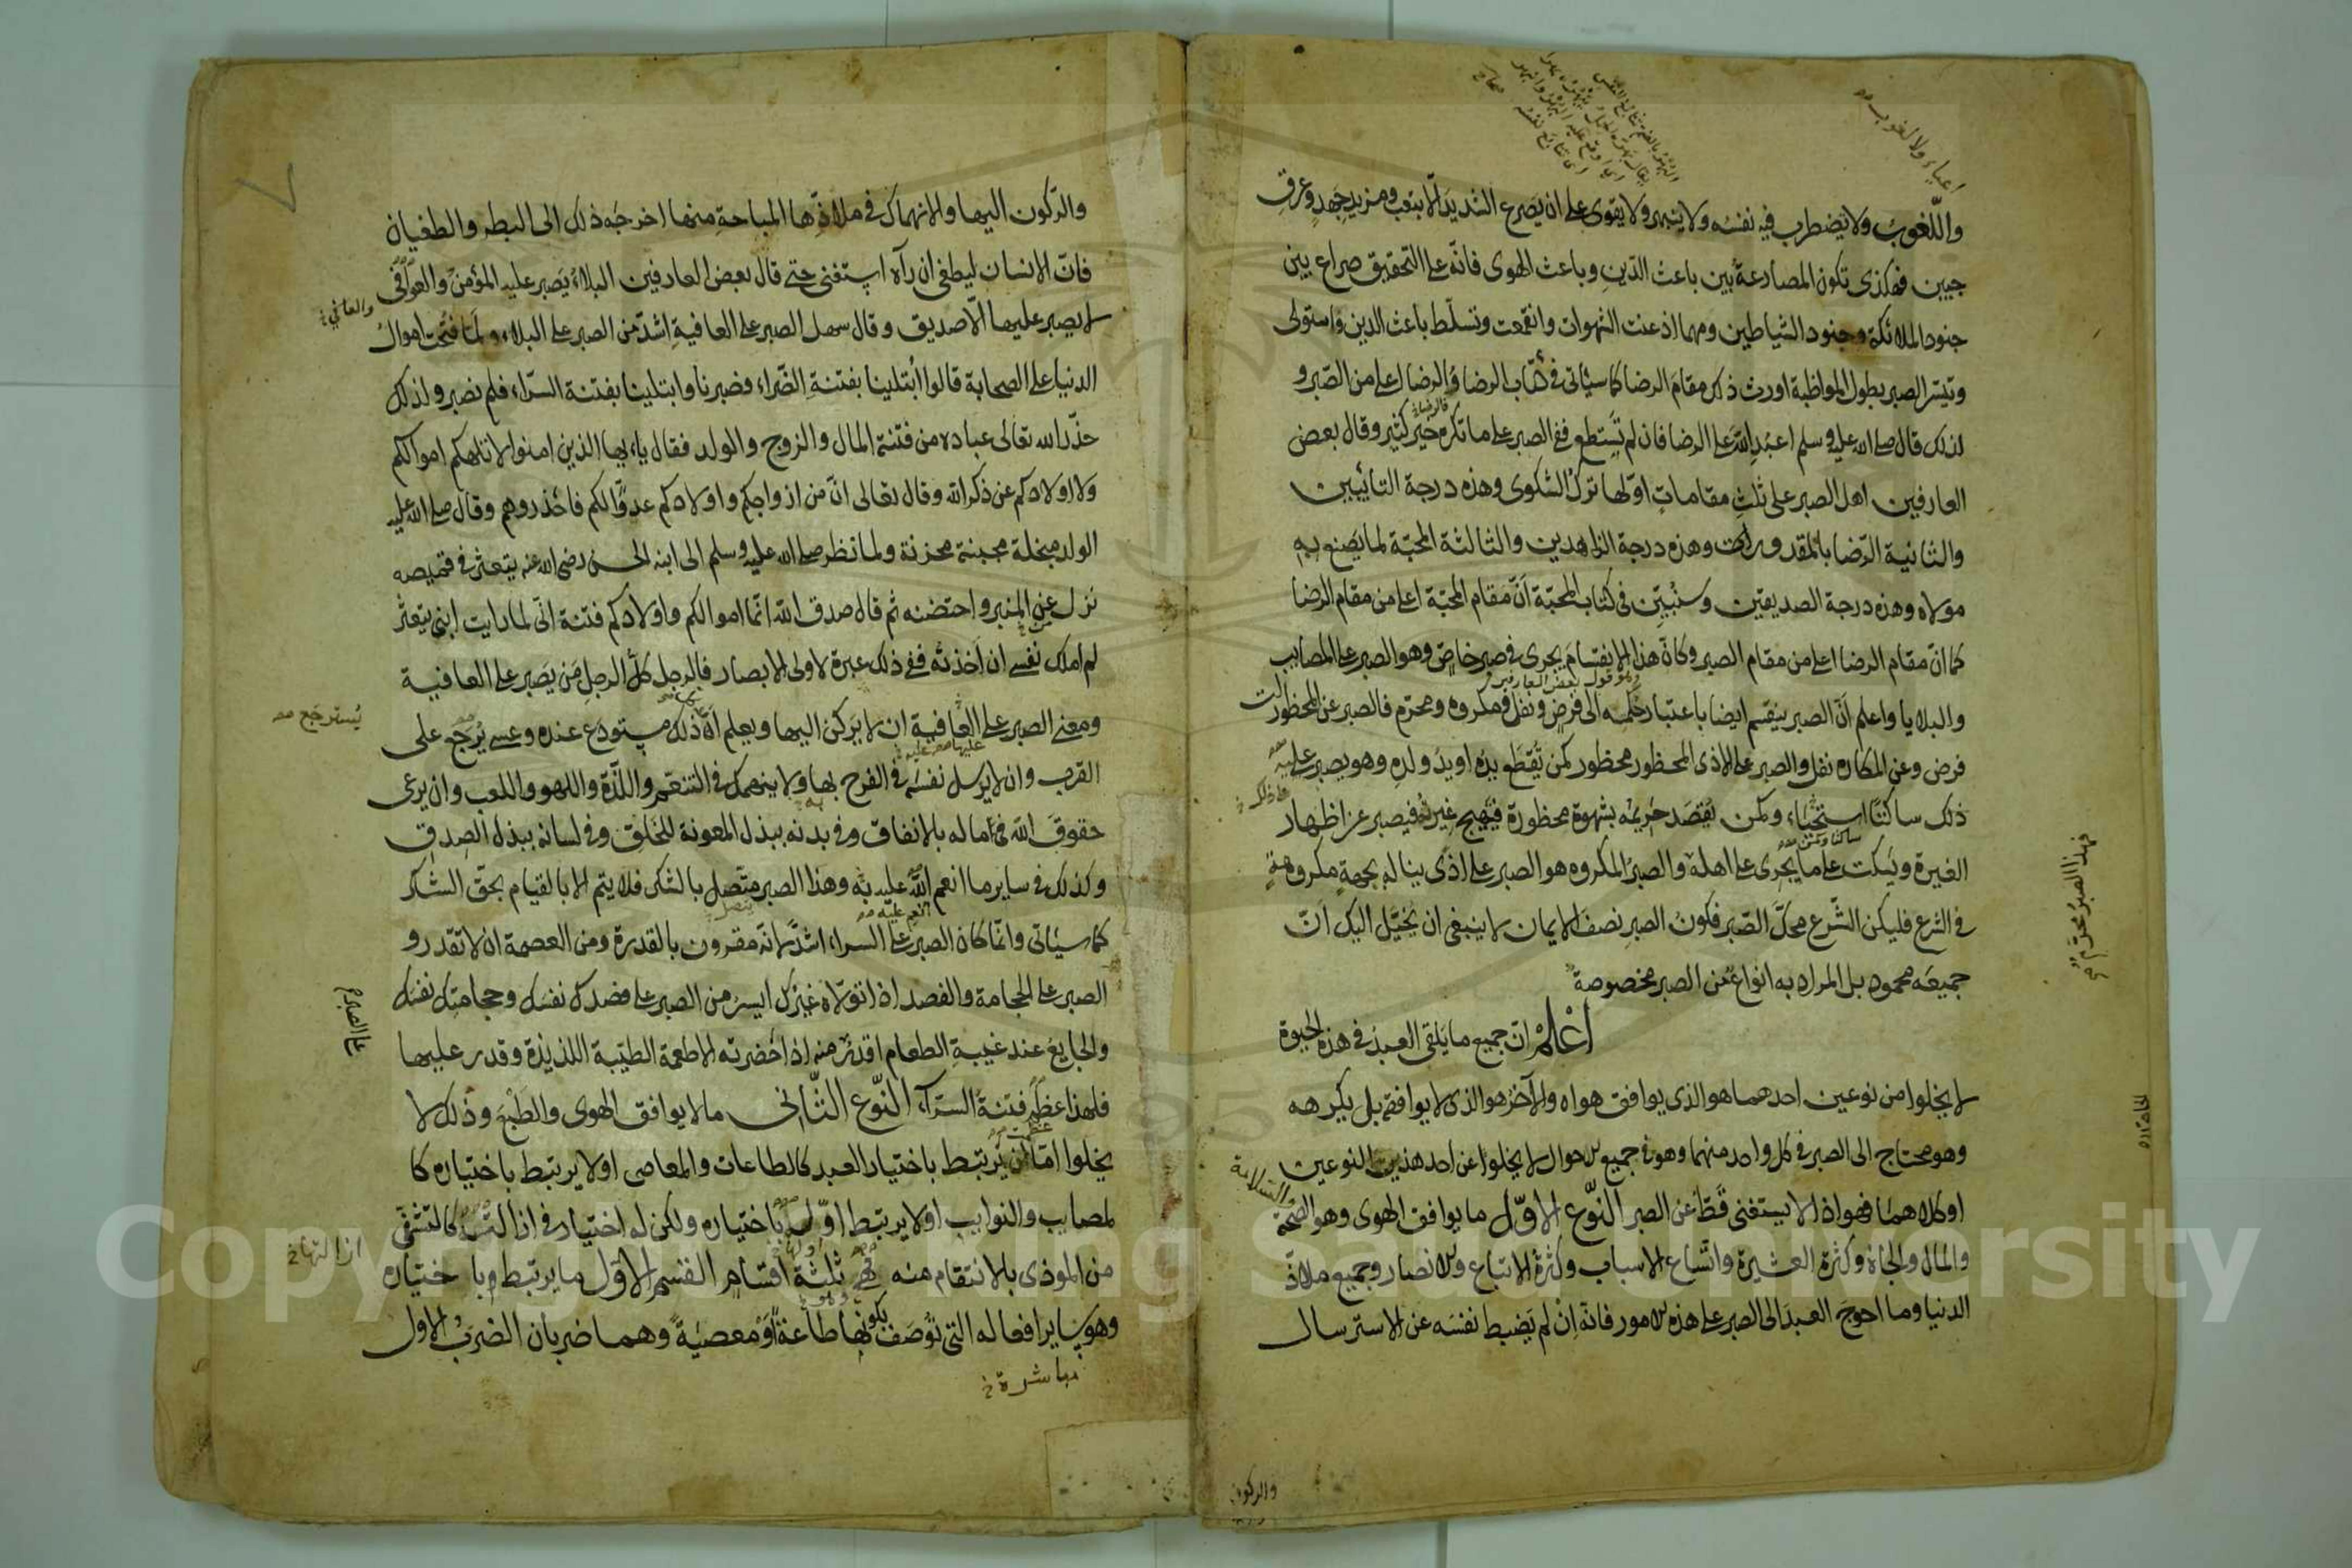 اعياء ولا لغوب صح
واللّغوب ولا يضطرب فيه نفسه ولا ينبهر ولا يقوى على ان يصرع الشديد الّا بتعب ومزيد جهد وعرق
جبين فهكذى تكون المصارعة بين باعث الدّين وباعث الهوى فانّه على التحقيق صراع بين
جنود الملائكة وجنود الشياطين ومهما اذعنت الشهوات وانقمعت وتسلّط باعث الدين واستولى
وتيسّر الصبر بطول المواظبة اورث ذلك مقام الرضا كما سيأتى فى كتاب الرضا والرضا اعلى من الصّبر و
لذلك قال صلى الله عليه وسلم اعبد الله على الرضا فان لم تستطع ففى الصبر على ما تكره خير كثير وقال بعض
العارفين اهل الصبر على ثلث مقامات اوّلها ترك الشكوى وهذه درجة التائبين
والثانية الرّضا بالمقدور وهذه درجة الزاهدين والثالثة المحبّة لما يصنع به
مولاه وهذه درجة الصديقين وسنبيّن فى كتاب المحبّة انّ مقام المحبّة اعلى من مقام الرضا
كما انّ مقام الرضا اعلى من مقام الصبر وكانّ هذا الانقسام يجرى فى صبر خاصّ وهو الصبر على المصايب
والبلايا واعلم انّ الصبر ينقسم ايضا باعتبار حكمه الى فرض ونفل ومكروه ومحرّم فالصبر عن المحظورات
فرض وعن المكاره نفل والصبر على الاذى المحظور محظور كمن تقطع يده او يد ولده وهو يصبر عليه
ذلك ساكتا استحياء وكمن يقصد حريمه بشهوة محظورة فتهيج غيرته فيصبر عن اظهار
الغيرة ويسكت على ما يجرى على اهله والصبر المكروه هو الصبر على اذى يناله بجهة مكروهة
فى الشرع فليكن الشّرع محكّ الصّبر فكون الصبر نصف الايمان لا ينبغى ان يخيّل اليك انّ
جميعه محمود بل المراد به انواع من الصبر مخصوصة
اعلم انّ جميع ما يلقى العبد فى هذه الحيوة
لا يخلوا من نوعين احدهما هو الذى يوافق هواه والآخر هو الذى لا يوافقه بل يكرهه
وهو محتاج الى الصبر فى كل واحد منهما وهو فى جميع الاحوال لا يخلوا عن احد هذين النوعين
او كلاهما فهو اذا لا يستغنى قطّ عن الصبر النّوع الاوّل ما يوافق الهوى وهو الصحة
والسلامة
والمال والجاه وكثرة العشيرة واتّساع الاسباب وكثرة الاتباع والانصار وجميع ملاذّ
الدنيا وما احوج العبد الى الصبر على هذه الامور فانّه ان لم يضبط نفسه عن الاسترسال
والركون
فهذا الصبر محرّم
والرّكون اليها والانهماك فى ملاذّها المباحة منها اخرجه ذلك الى البطر والطغيان
فانّ الانسان ليطغى ان رآه استغنى حتى قال بعض العارفين البلاء يصبر عليه المؤمن والعوافى
لا يصبر عليها الّا صديق وقال سهل الصبر على العافية اشدّ من الصبر على البلاء ولمّا فتحت اموال
الدنيا على الصحابة قالوا ابتلينا بفتنة الضّراء فصبرنا وابتلينا بفتنة السرّاء فلم نصبر ولذلك
حذّر الله تعالى عباده من فتنة المال والزوج والولد فقال يا ايها الذين امنوا لا تلهكم اموالكم
ولا اولادكم عن ذكر الله وقال تعالى انّ من ازواجكم واولادكم عدوّا لكم فاحذروهم وقال صلى الله عليه
الولد مبخلة مجبنة محزنة ولما نظر صلى الله عليه وسلم الى ابنه الحسن رضى الله عنه يتعثّر فى قميصه
نزل عن المنبر واحتضنه ثم قال صدق الله انّما اموالكم واولادكم فتنة انّى لما رايت ابنى يتعثّر
لم املك نفسى ان اخذته ففى ذلك عبرة لاولى الابصار فالرجل كلّ الرجل من يصبر على العافية
ومعنى الصبر على العافية ان لا يركن اليها ويعلم انّ ذلك مستودع عنده وعسى يرجع على
يسترجع صح
القرب وان لا يرسل نفسه فى الفرح بها ولا ينهمك فى التنعّم واللذّة واللهو واللعب وان يرعى
حقوق الله فى ماله بالانفاق وفى بدنه ببذل المعونة للخلق وفى لسانه ببذل الصدق
وكذلك فى ساير ما انعم الله عليه به وهذا الصبر متّصل بالشكر فلا يتم الا بالقيام بحقّ الشكر
كما سيأتى وانّما كان الصبر على السراء اشدّ لانّه مقرون بالقدرة ومن العصمة ان لا تقدر و
الصبر على الحجامة والفصد اذا تولّاه غيرك ايسر من الصبر على فصدك نفسك وحجامتك نفسك
والجايع عند غيبة الطعام اقدر منه اذا حضرته الاطعمة الطيّبة اللذيذة وقدر عليها
فلهذا عظم فتنة السرّاء النّوع الثّانى ما لا يوافق الهوى والطبع وذلك لا
يخلوا امّا ان يرتبط باختيار العبد كالطاعات والمعاصى او لا يرتبط باختياره كا
لمصايب والنوايب او لا يرتبط اوّله باختياره ولكن له اختيار فى ازالته كالتشفّى
ازالتها خ
من الموذى بالانتقام منه فهى ثلثة اقسام القسم الاوّل ما يرتبط باختياره
وهو ساير افعاله التى توصف بكونها طاعة او معصية وهما ضربان الضرب الاول
مباشرة خ
Copyright © King Saud University